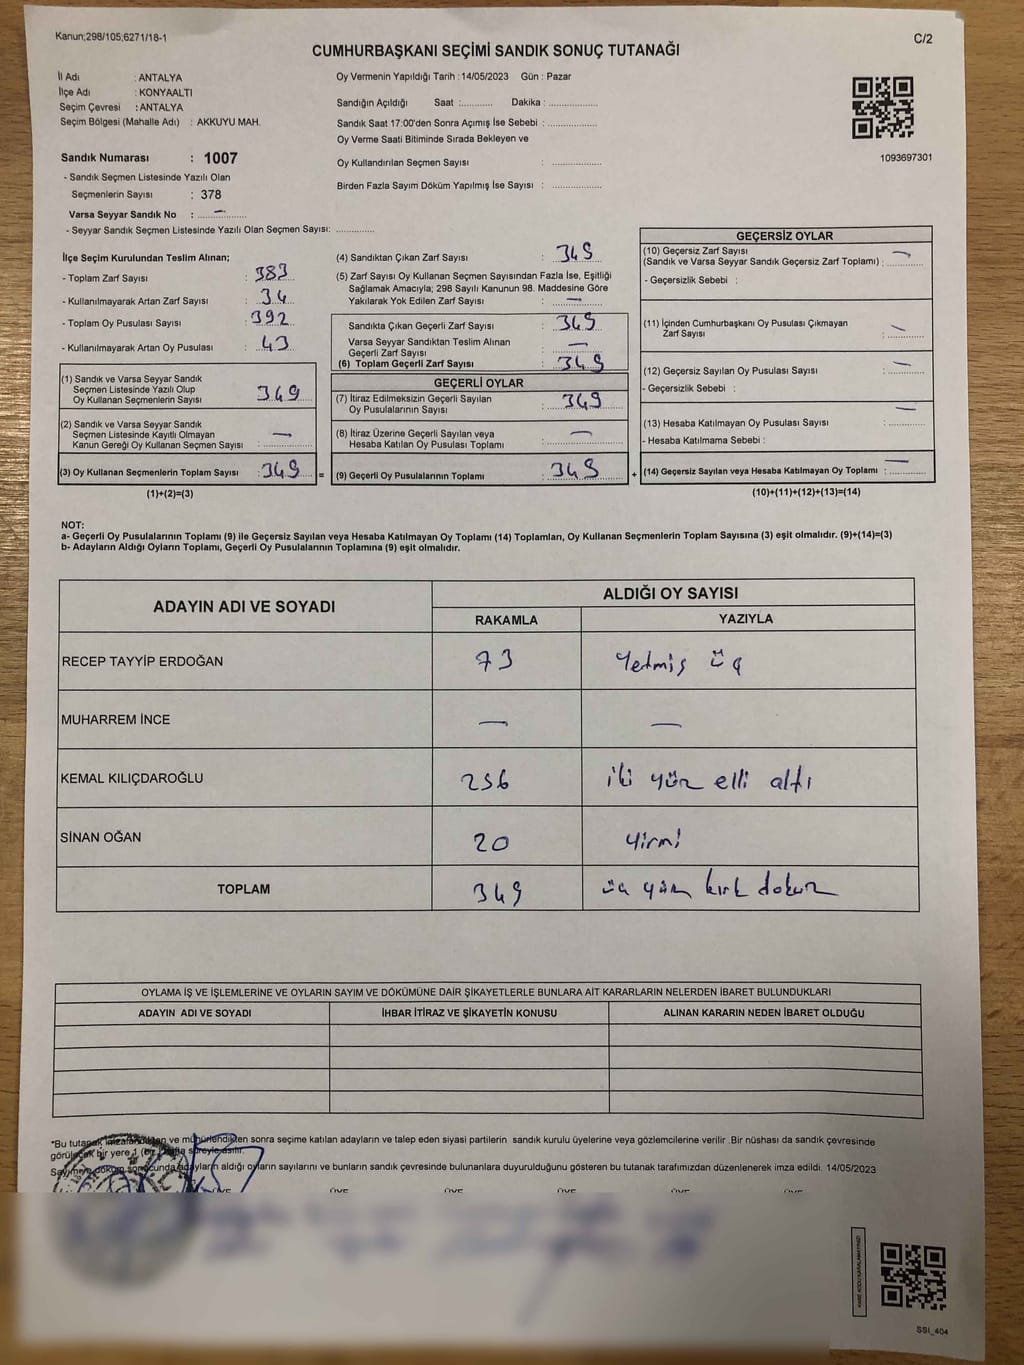 Kanun;298/105;6271/18-1
C/2
CUMHURBAŞKANI SEÇİMİ SANDIK SONUÇ TUTANAĞI
İl Adı : ANTALYA
İlçe Adı : KONYAALTI
Seçim Çevresi : ANTALYA
Seçim Bölgesi (Mahalle Adı) : AKKUYU MAH.
Sandık Numarası : 1007
- Sandık Seçmen Listesinde Yazılı Olan
Seçmenlerin Sayısı : 378
Varsa Seyyar Sandık No : —
- Seyyar Sandık Seçmen Listesinde Yazılı Olan Seçmen Sayısı: ............
Oy Vermenin Yapıldığı Tarih : 14/05/2023 Gün : Pazar
Sandığın Açıldığı Saat :........... Dakika : ................
Sandık Saat 17:00'den Sonra Açımış İse Sebebi : ................
Oy Verme Saati Bitiminde Sırada Bekleyen ve
Oy Kullandırılan Seçmen Sayısı : ................
Birden Fazla Sayım Döküm Yapılmış İse Sayısı : ................
1093697301
İlçe Seçim Kurulundan Teslim Alınan;
- Toplam Zarf Sayısı : 383
- Kullanılmayarak Artan Zarf Sayısı : 34
- Toplam Oy Pusulası Sayısı : 392
- Kullanılmayarak Artan Oy Pusulası : 43
(1) Sandık ve Varsa Seyyar Sandık
Seçmen Listesinde Yazılı Olup
Oy Kullanan Seçmenlerin Sayısı : 349
(2) Sandık ve Varsa Seyyar Sandık
Seçmen Listesinde Kayıtlı Olmayan
Kanun Gereği Oy Kullanan Seçmen Sayısı : —
(3) Oy Kullanan Seçmenlerin Toplam Sayısı : 349 =
(1)+(2)=(3)
(4) Sandıktan Çıkan Zarf Sayısı : 349
(5) Zarf Sayısı Oy Kullanan Seçmen Sayısından Fazla İse, Eşitliği
Sağlamak Amacıyla; 298 Sayılı Kanunun 98. Maddesine Göre
Yakılarak Yok Edilen Zarf Sayısı : —
Sandıkta Çıkan Geçerli Zarf Sayısı : 349
Varsa Seyyar Sandıktan Teslim Alınan
Geçerli Zarf Sayısı : —
(6) Toplam Geçerli Zarf Sayısı : 349
GEÇERLİ OYLAR
(7) İtiraz Edilmeksizin Geçerli Sayılan
Oy Pusulalarının Sayısı : 349
(8) İtiraz Üzerine Geçerli Sayılan veya
Hesaba Katılan Oy Pusulası Toplamı : —
(9) Geçerli Oy Pusulalarının Toplamı : 349 +
GEÇERSİZ OYLAR
(10) Geçersiz Zarf Sayısı
(Sandık ve Varsa Seyyar Sandık Geçersiz Zarf Toplamı) : —
- Geçersizlik Sebebi :
(11) İçinden Cumhurbaşkanı Oy Pusulası Çıkmayan
Zarf Sayısı : —
(12) Geçersiz Sayılan Oy Pusulası Sayısı : —
- Geçersizlik Sebebi :
(13) Hesaba Katılmayan Oy Pusulası Sayısı : —
- Hesaba Katılmama Sebebi :
(14) Geçersiz Sayılan veya Hesaba Katılmayan Oy Toplamı : —
(10)+(11)+(12)+(13)=(14)
NOT:
a- Geçerli Oy Pusulalarının Toplamı (9) ile Geçersiz Sayılan veya Hesaba Katılmayan Oy Toplamı (14) Toplamları, Oy Kullanan Seçmenlerin Toplam Sayısına (3) eşit olmalıdır. (9)+(14)=(3)
b- Adayların Aldığı Oyların Toplamı, Geçerli Oy Pusulalarının Toplamına (9) eşit olmalıdır.
ADAYIN ADI VE SOYADI ALDIĞI OY SAYISI
RAKAMLA YAZIYLA
RECEP TAYYİP ERDOĞAN 73 Yetmiş üç
MUHARREM İNCE — —
KEMAL KILIÇDAROĞLU 256 iki yüz elli altı
SİNAN OĞAN 20 Yirmi
TOPLAM 349 üç yüz kırk dokuz
OYLAMA İŞ VE İŞLEMLERİNE VE OYLARIN SAYIM VE DÖKÜMÜNE DAİR ŞİKAYETLERLE BUNLARA AİT KARARLARIN NELERDEN İBARET BULUNDUKLARI
ADAYIN ADI VE SOYADI İHBAR İTİRAZ VE ŞİKAYETİN KONUSU ALINAN KARARIN NEDEN İBARET OLDUĞU
*Bu tutanak imzalandıktan ve mühürlendikten sonra seçime katılan adayların ve talep eden siyasi partilerin sandık kurulu üyelerine veya gözlemcilerine verilir .Bir nüshası da sandık çevresinde
görülecek bir yere 1 (bir) hafta süreyle asılır.
Sayım ve döküm sonucunda adayların aldığı oyların sayılarını ve bunların sandık çevresinde bulunanlara duyurulduğunu gösteren bu tutanak tarafımızdan düzenlenerek imza edildi. 14/05/2023
ÜYE ÜYE ÜYE ÜYE ÜYE ÜYE
SSI_404